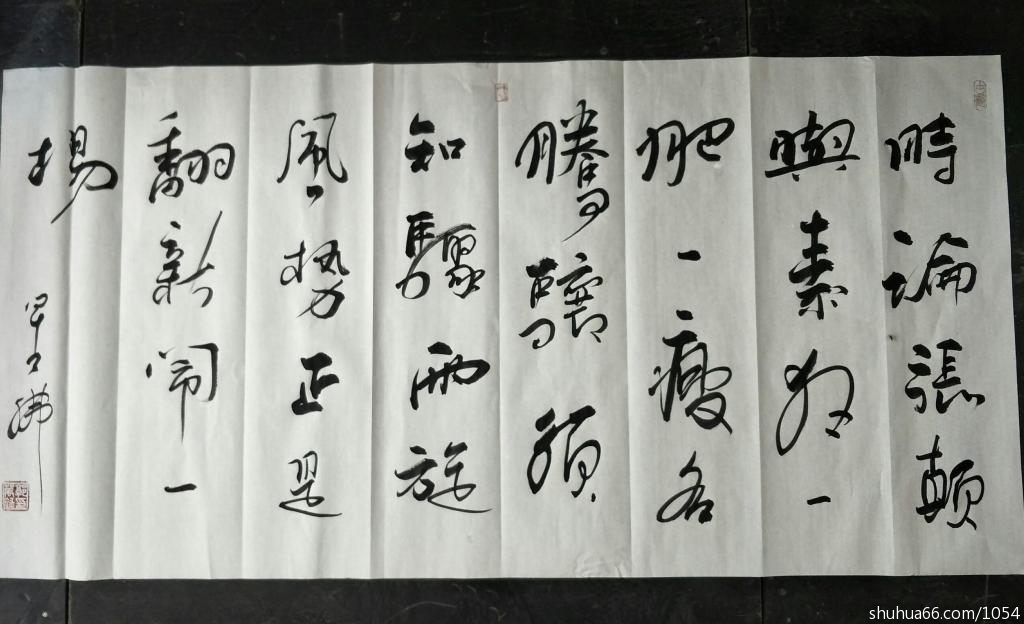 時論張顛
與素狂一
肥一瘦各
騰驤須
知驟雨旋
風勢正是
翻新鬧一
場
shuhua66.com/1054